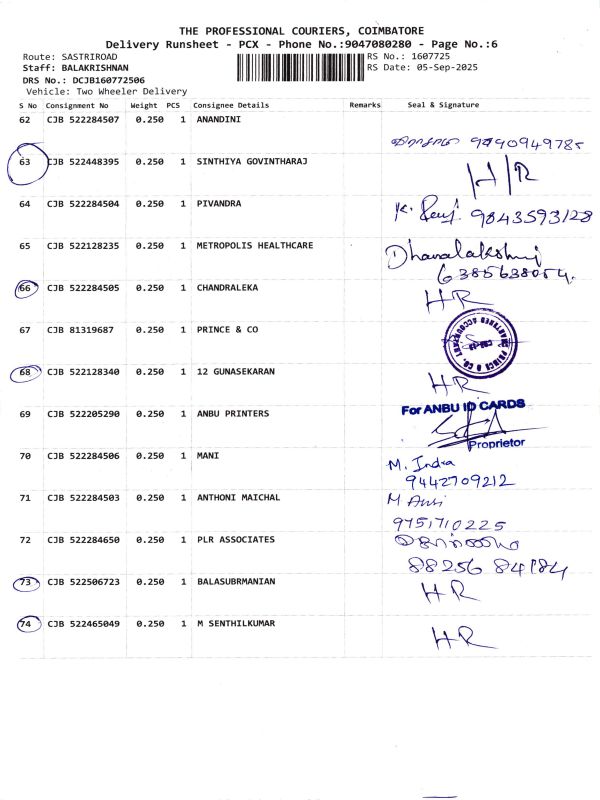 THE PROFESSIONAL COURIERS, COIMBATORE
Delivery Runsheet - PCX - Phone No.:9047080280 - Page No.:6
Route: SASTRIROAD
Staff: BALAKRISHNAN
DRS No.: DCJB160772506
Vehicle: Two Wheeler Delivery
RS No.: 1607725
RS Date: 05-Sep-2025
S No Consignment No Weight PCS Consignee Details Remarks Seal & Signature
62 CJB 522284507 0.250 1 ANANDINI
63 CJB 522448395 0.250 1 SINTHIYA GOVINTHARAJ H/R
64 CJB 522284504 0.250 1 PIVANDRA K. 9843593128
65 CJB 522128235 0.250 1 METROPOLIS HEALTHCARE Dhanalakshmi
6385638054.
66 CJB 522284505 0.250 1 CHANDRALEKA HR
67 CJB 81319687 0.250 1 PRINCE & CO
68 CJB 522128340 0.250 1 12 GUNASEKARAN HR
69 CJB 522205290 0.250 1 ANBU PRINTERS For ANBU ID CARDS
Proprietor
70 CJB 522284506 0.250 1 MANI M. Indra
9442709212
71 CJB 522284503 0.250 1 ANTHONI MAICHAL M
9751710225
72 CJB 522284650 0.250 1 PLR ASSOCIATES
88256 84184
73 CJB 522506723 0.250 1 BALASUBRMANIAN HR
74 CJB 522465049 0.250 1 M SENTHILKUMAR HR